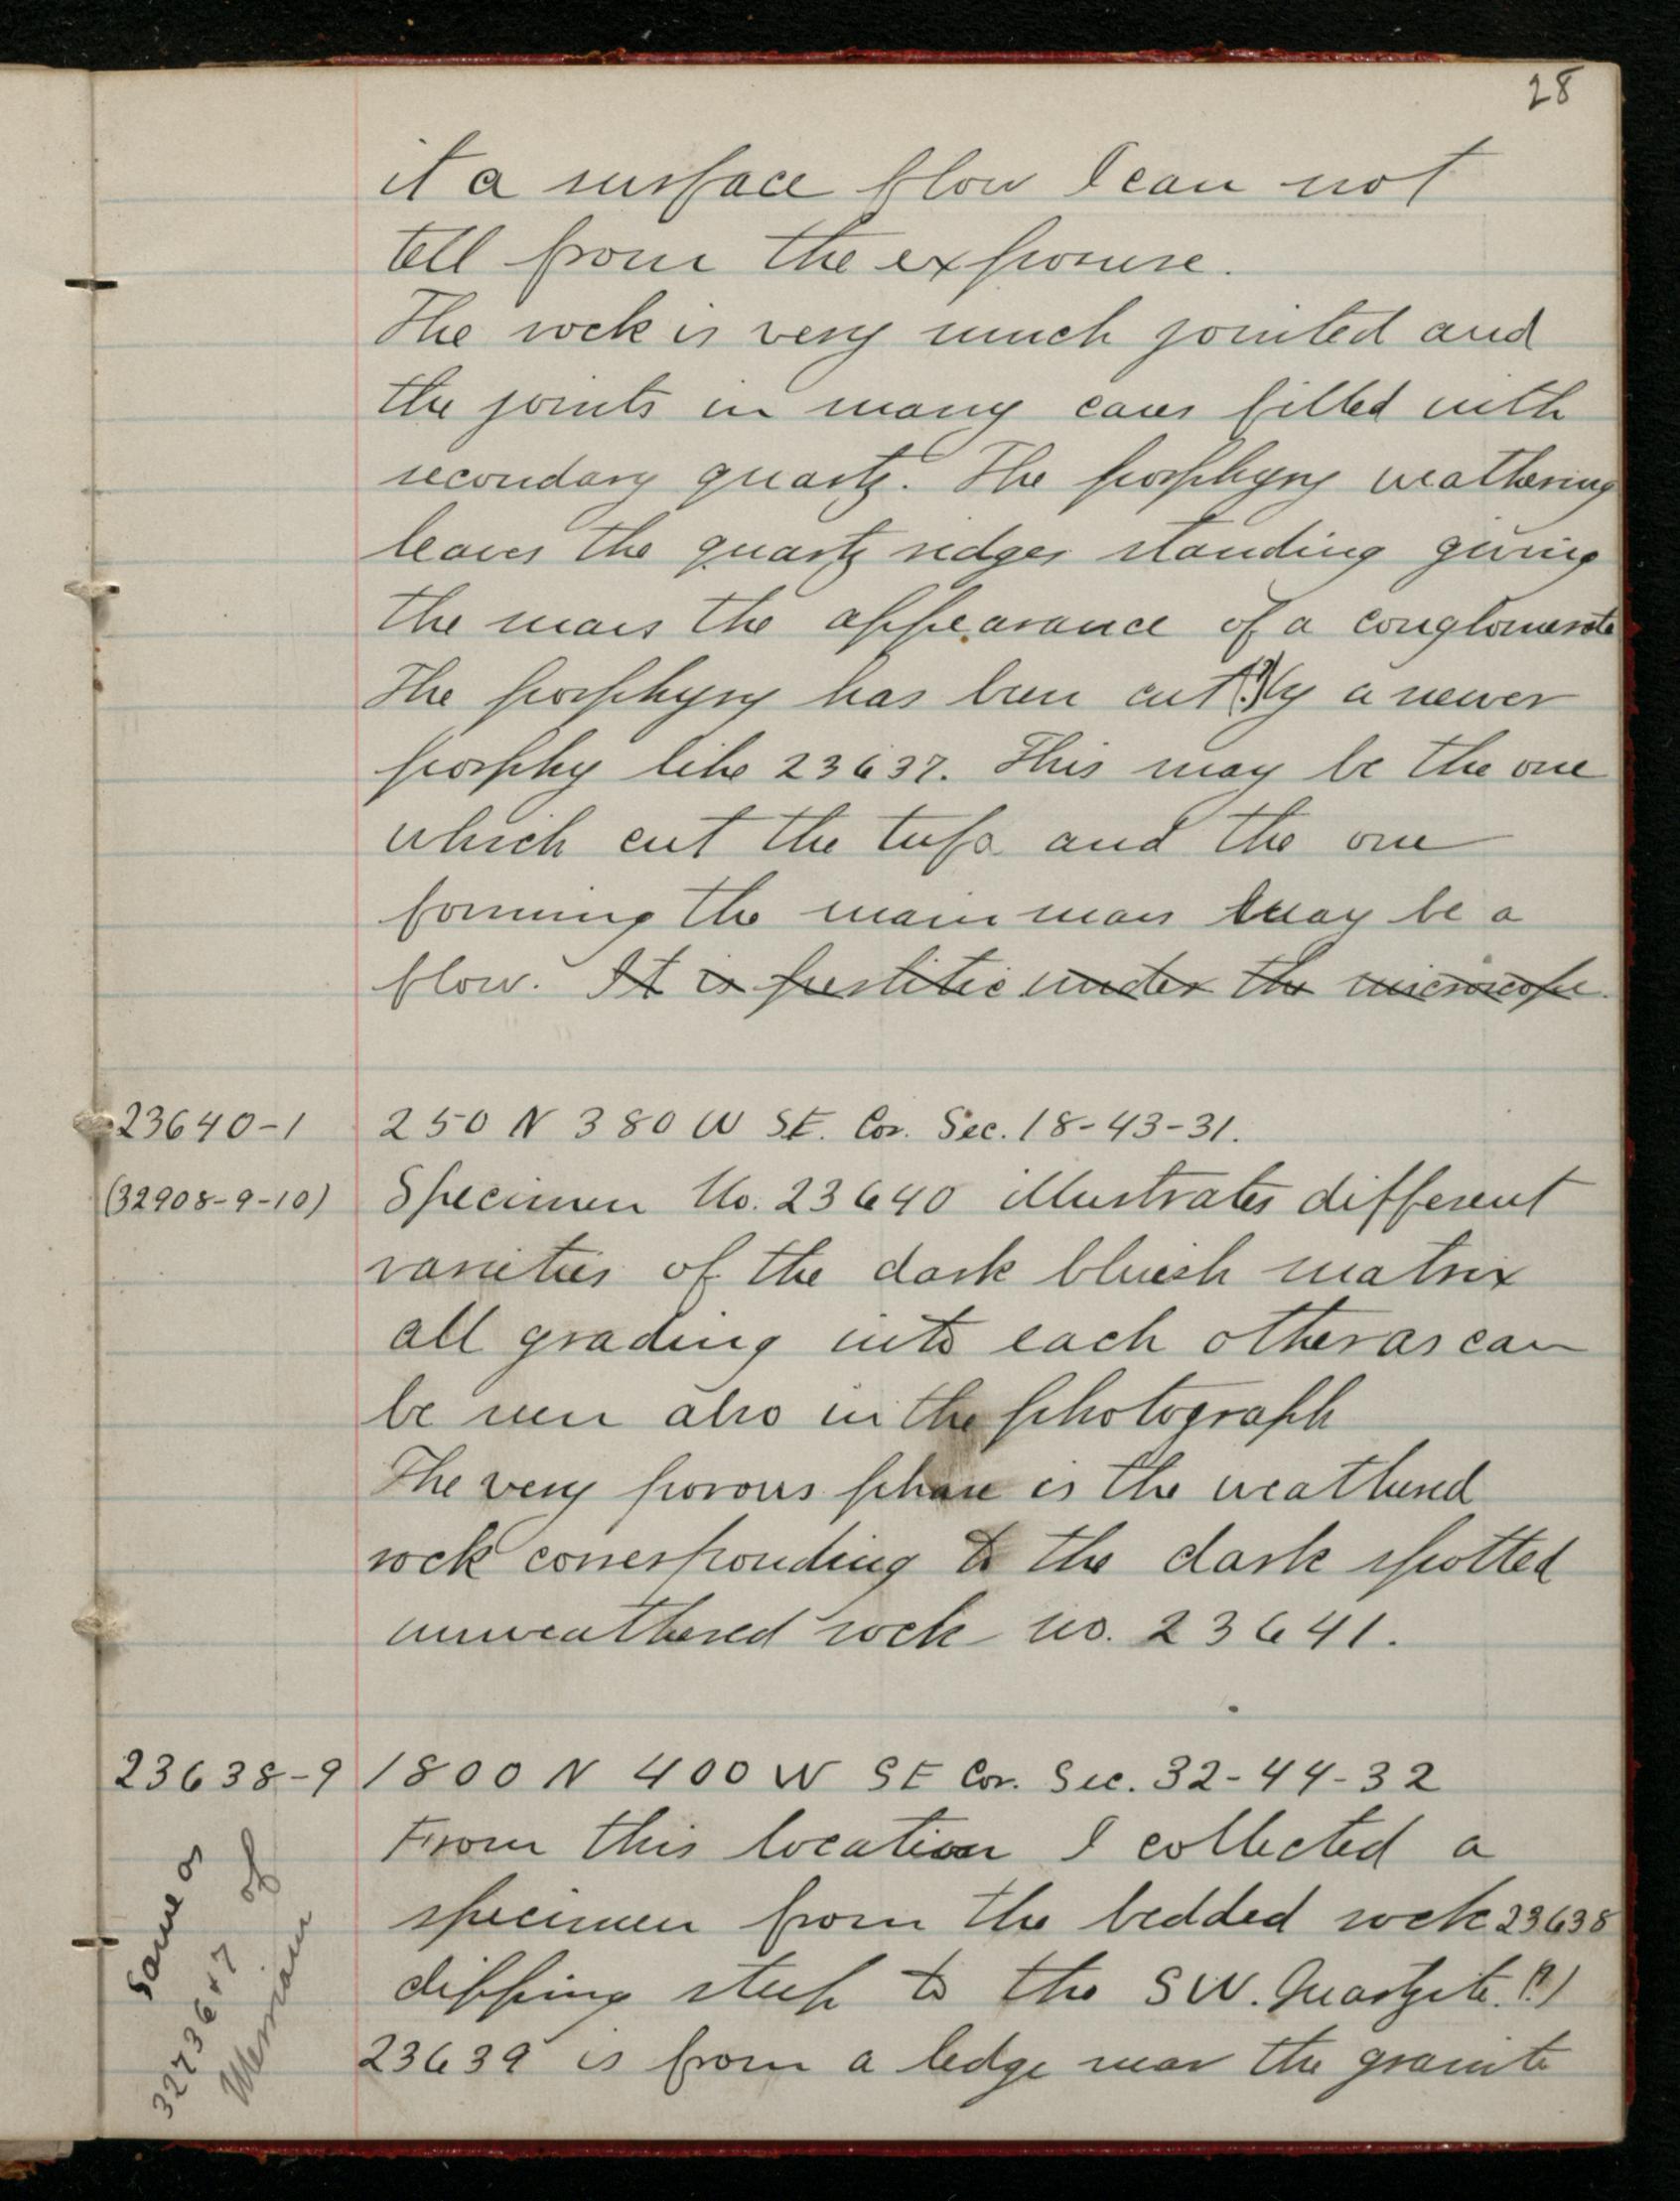 28
it a surface flow I can not
tell from the exposure.
The rock is very much jointed and
the joints in many cases filled with
secondary quartz. The porphyry weathering
leaves the quartz ridges standing giving
the mass the appearance of a conglomerate
The porphyry has been cut (?) by a newer
porphy like 23637. This may be the one
which cut the tufa and the one
forming the main mass may be a
flow. It is perlitic under the microscope.
23640-1
250 N 380 W SE. Cor. Sec. 18-43-31.
(32908-9-10)
Specimen No. 23640 illustrates different
varieties of the dark bluish matrix
all grading into each other as can
be seen also in the photograph
The very porous phase is the weathered
rock corresponding to the dark spotted
unweathered rock no. 23641.
23638-9
1800 N 400 W SE Cor. Sec. 32-44-32
From this location I collected a
specimen from the bedded rock 23638
dipping steep to the SW. Quartzite. (?)
23639 is from a ledge near the granite
Same as
of
Merriam